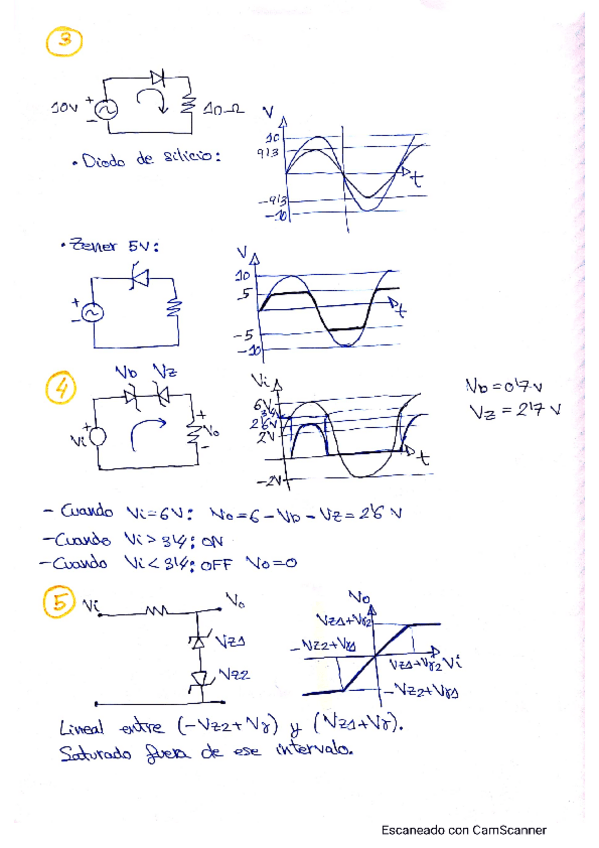 3
10V + -
10Ω
V
10
9'3
t
-9'3
-10
• Diodo de silicio:
• Zener 5V:
V
10
5
t
-5
-10
+ -
4
Vb Vz
Vi + -
+ Vo -
Vi
6V
2'6V
2V
t
-2V
Vb = 0'7 V
Vz = 2'7 V
- Cuando Vi=6V: Vo=6-Vb-Vz=2'6 V
- Cuando Vi > 3'4: ON
- Cuando Vi < 3'4: OFF Vo=0
5
Vi
Vo
VZ1
VZ2
Vo
VZ1+Vγ2
-VZ2+Vγ1
VZ1+Vγ2 Vi
-VZ2+Vγ1
Lineal entre (-VZ2+Vγ) y (VZ1+Vγ).
Saturado fuera de ese intervalo.
Escaneado con CamScanner